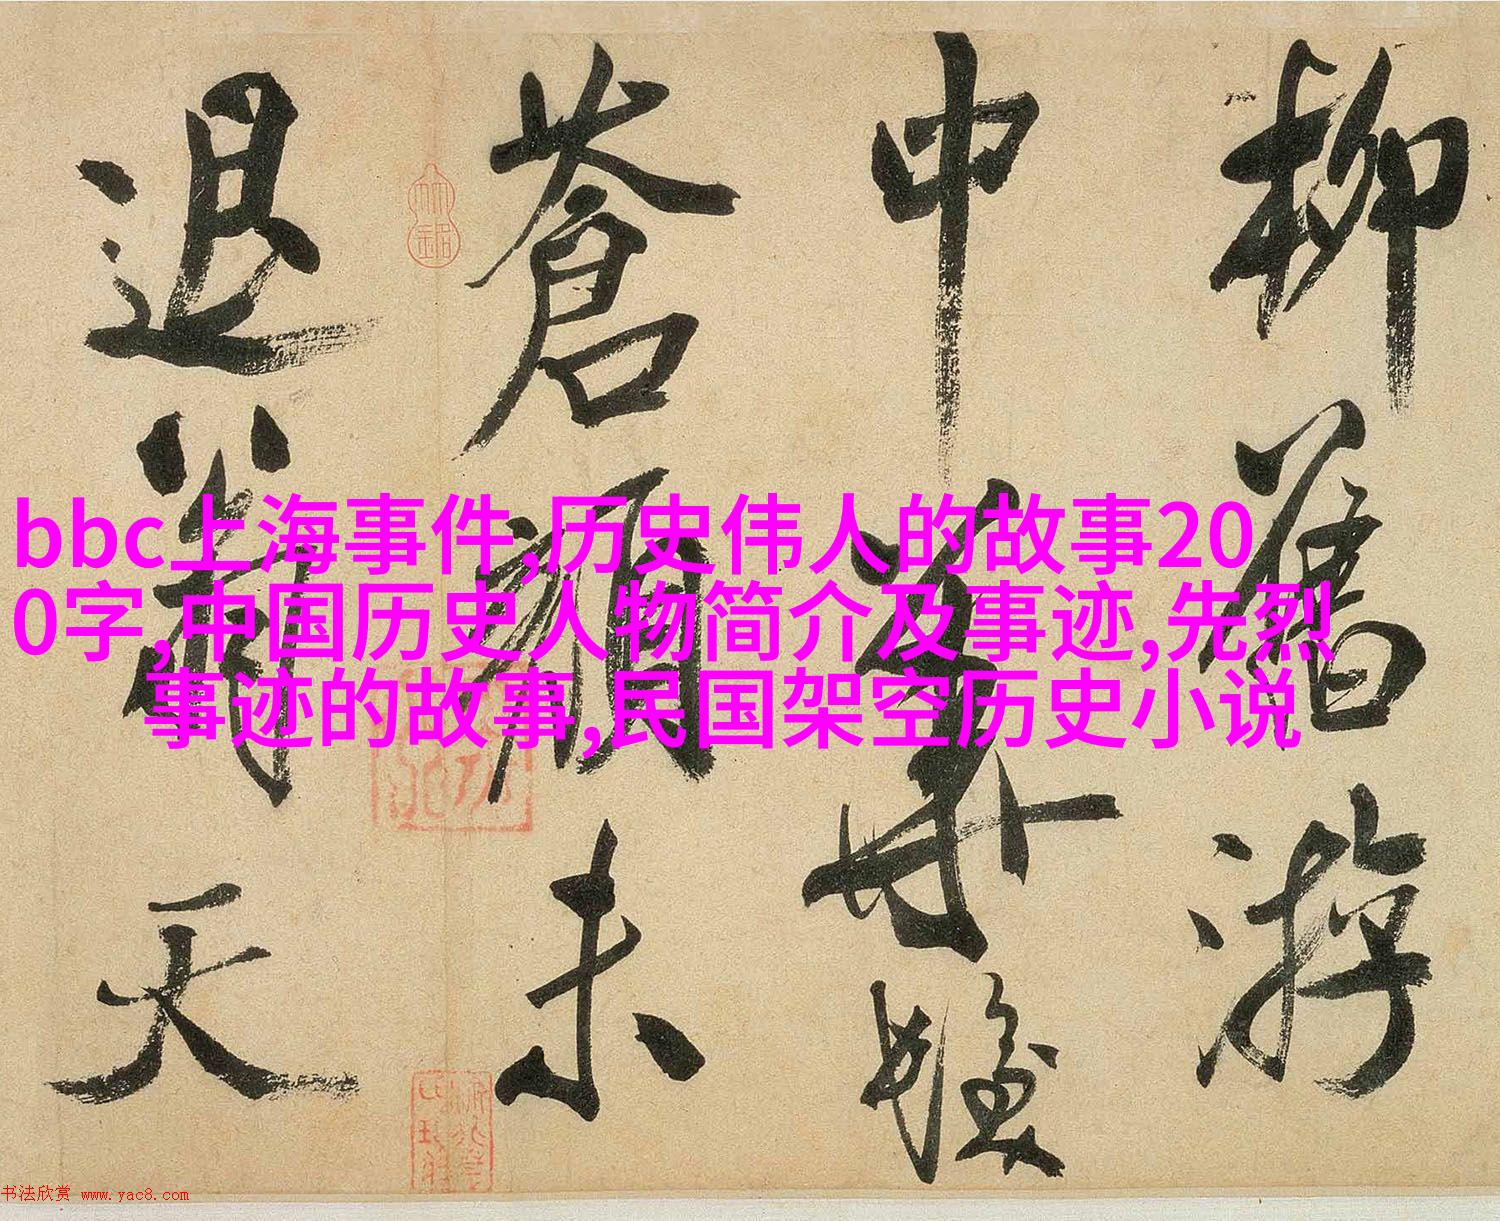 bbc上海事件,历史伟人的故事20
0字,中国历史人物简介及事迹,先烈
事迹的故事,民国架空历史小说
柳舊游
中華
蒼顏未
退翁天
书法欣赏 www.yac8.com